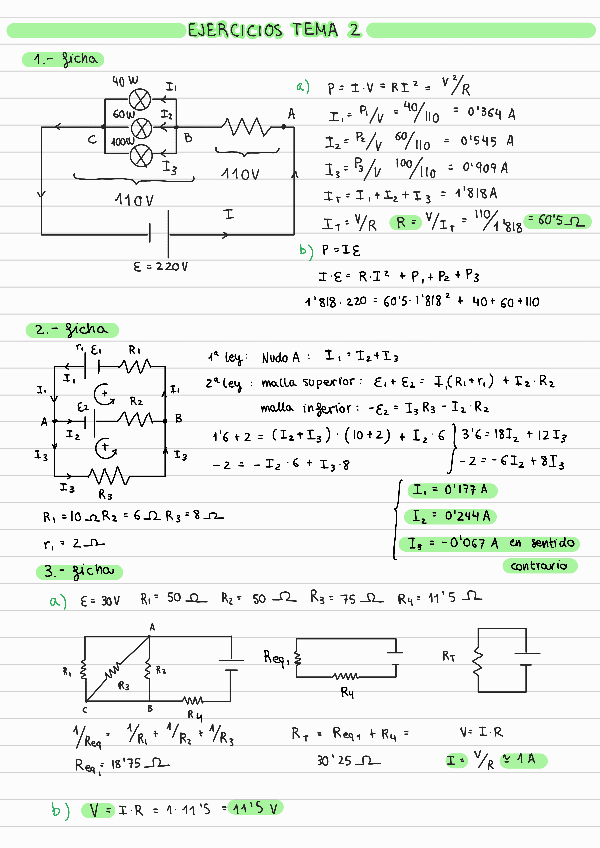 EJERCICIOS TEMA 2
1.- ficha
40 W I₁
60W I₂
100W I₃
C B A
110V 110V
I
ε = 220V
a) P = I · V = RI² = V²/R
I₁ = P₁/V = 40/110 = 0'364 A
I₂ = P₂/V 60/110 = 0'545 A
I₃ = P₃/V 100/110 = 0'909 A
I_T = I₁ + I₂ + I₃ = 1'818A
I_T = V/R R = V/I_T = 110/1'818 = 60'5 Ω
b) P = Iε
I · ε = R · I² + P₁ + P₂ + P₃
1'818 · 220 = 60'5 · 1'818² + 40 + 60 + 110
2.- ficha
r₁ ε₁ R₁
I₁
I₁ + I₁
A ε₂ R₂ B
I₂
I₃ + I₃
I₃ R₃
R₁ = 10 Ω R₂ = 6 Ω R₃ = 8 Ω
r₁ = 2 Ω
1ª ley: Nudo A: I₁ = I₂ + I₃
2ª ley: malla superior: ε₁ + ε₂ = I₁(R₁ + r₁) + I₂ · R₂
malla inferior: -ε₂ = I₃ R₃ - I₂ · R₂
1'6 + 2 = (I₂ + I₃) · (10 + 2) + I₂ · 6 3'6 = 18I₂ + 12I₃
-2 = -I₂ · 6 + I₃ · 8 -2 = -6I₂ + 8I₃
I₁ = 0'177 A
I₂ = 0'244 A
I₃ = -0'067 A en sentido
contrario
3.- ficha
a) ε = 30V R₁ = 50 Ω R₂ = 50 Ω R₃ = 75 Ω R₄ = 11'5 Ω
A
R₁ R₃ R₂
C B R₄
Req₁
R₄
R_T
1/Req = 1/R₁ + 1/R₂ + 1/R₃
Req₁ = 18'75 Ω
R_T = Req₁ + R₄ =
30'25 Ω
V = I · R
I = V/R ≃ 1 A
b) V = I · R = 1 · 11'5 = 11'5 V